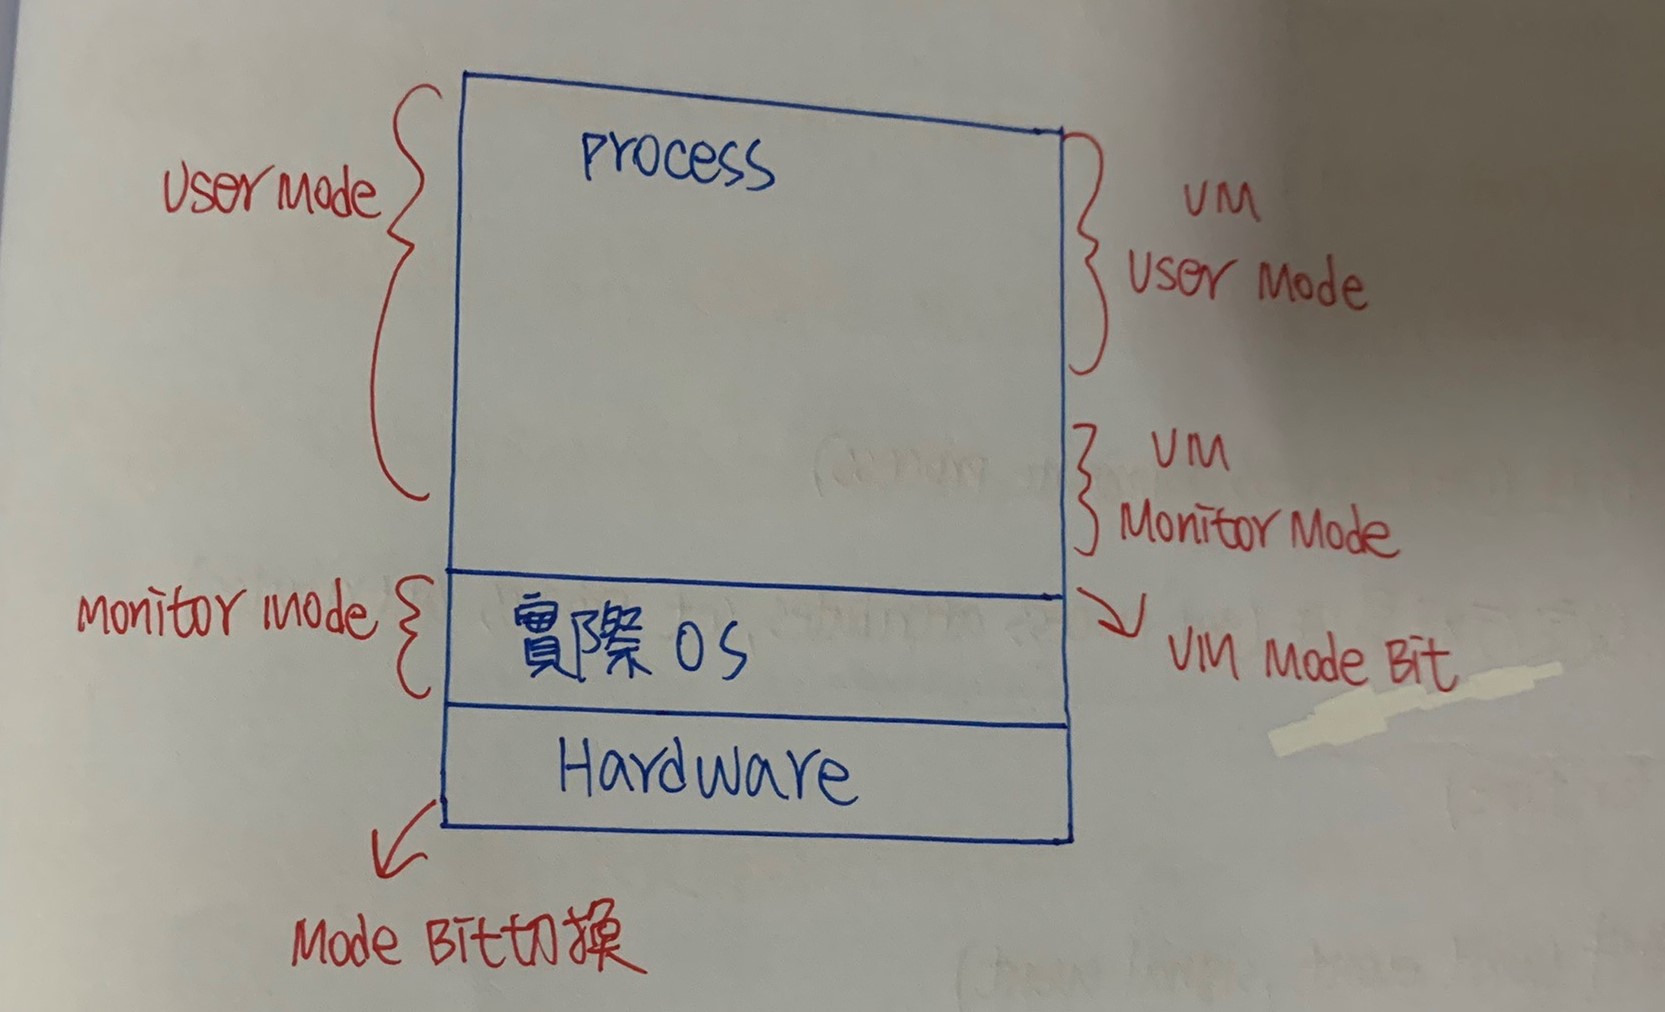 Process
User Mode
VM
User Mode
VM
Monitor Mode
Monitor Mode
實際 OS
VM Mode Bit
Hardware
Mode Bit切換